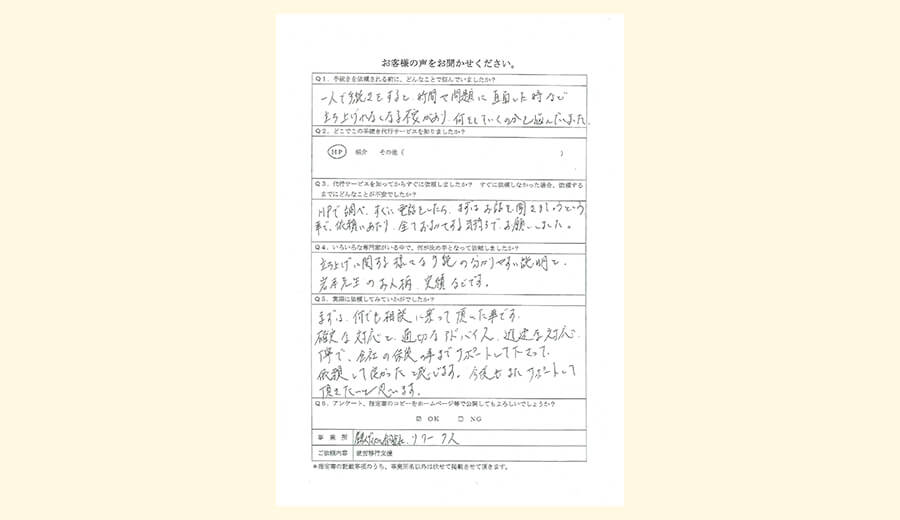 お客様の声をお聞かせください。
Q1．手続きを依頼される前に、どんなことで悩んでいましたか？
一人で手続きをすると、時間や問題に直面した時など
立ち上げれなくなる不安があり、何をしていくのかも悩んだいました。
Q2．どこでこの手続き代行サービスを知りましたか？
HP　紹介　その他（　　　）
Q3．代行サービスを知ってからすぐに依頼しましたか？　すぐに依頼しなかった場合、依頼する
までにどんなことが不安でしたか？
HPで調べ、すぐに電話をしたら、まずはお話を聞きましょうという
事で、依頼にあたり、全てお任せする気持ちで、お願いしました。
Q4．いろいろな専門家がいる中で、何が決め手となって依頼しましたか？
立ち上げに関する様々な手続の分かりやすい説明と、
岩本先生のお人柄、実績などです。
Q5．実際に依頼してみていかがでしたか？
まずは、何でも相談に乗って頂いた事です。
確実な対応と、適切なアドバイス、迅速な対応、
丁寧で、会社の保険の事までサポートして下さって、
依頼して良かったと感じます。今後もまたサポートして
頂きたいと思います。
Q6．アンケート、指定書のコピーをホームページ等で公開してもよろしいでしょうか？
☑ OK　□ NG
事業所　リワーク人
ご依頼内容　就労移行支援
＊指定書の記載事項のうち、事業所名以外は伏せて掲載させて頂きます。